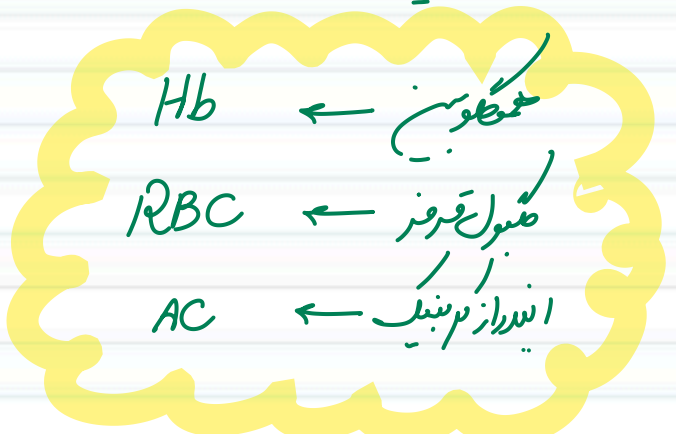 هموگلوبین ← Hb
گلبول قرمز ← RBC
انیدراز کربنیک ← AC